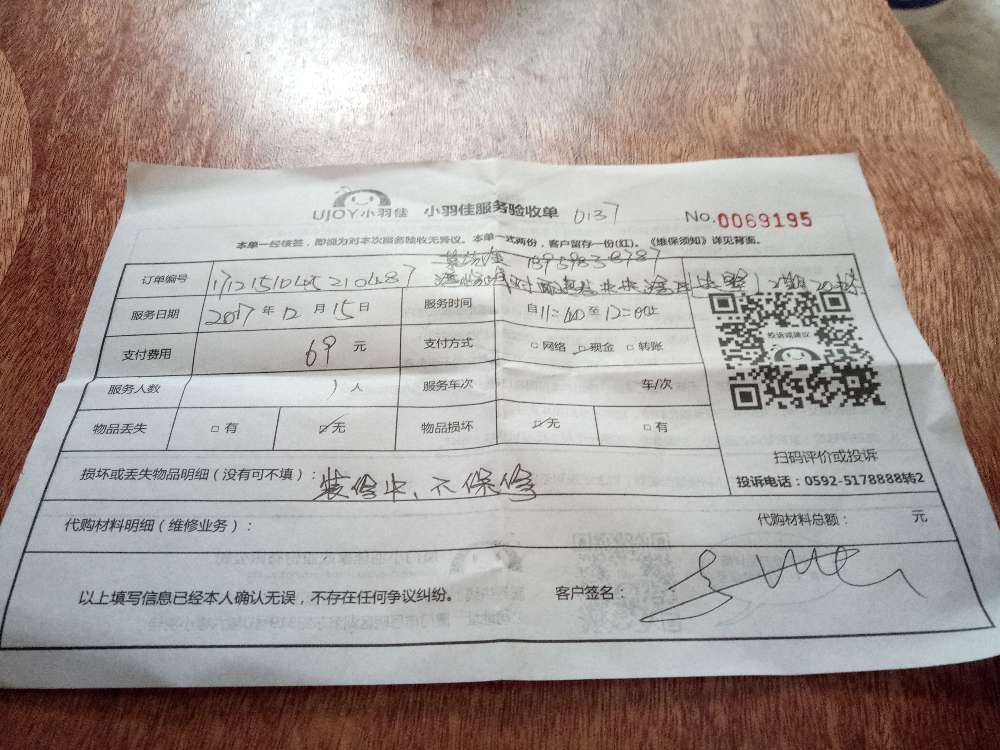 UJOY小羽佳 小羽佳服务验收单 0137 No.0069195
本单一经核签，即视为对本次服务验收无异议。本单一式两份，客户留存一份(红)。《维保须知》详见背面。
订单编号 1712151045210487
服务日期 2017年12月15日 服务时间 自11:00至12:00止
支付费用 69元 支付方式 □网络 □现金 □转账
服务人数 1人 服务车次 车/次
物品丢失 □有 ☑无 物品损坏 ☑无 □有
投诉或建议
扫码评价或投诉
投诉电话：0592-5178888转2
损坏或丢失物品明细（没有可不填）：装修中、不保修
代购材料明细（维修业务）： 代购材料总额： 元
以上填写信息已经本人确认无误，不存在任何争议纠纷。 客户签名：